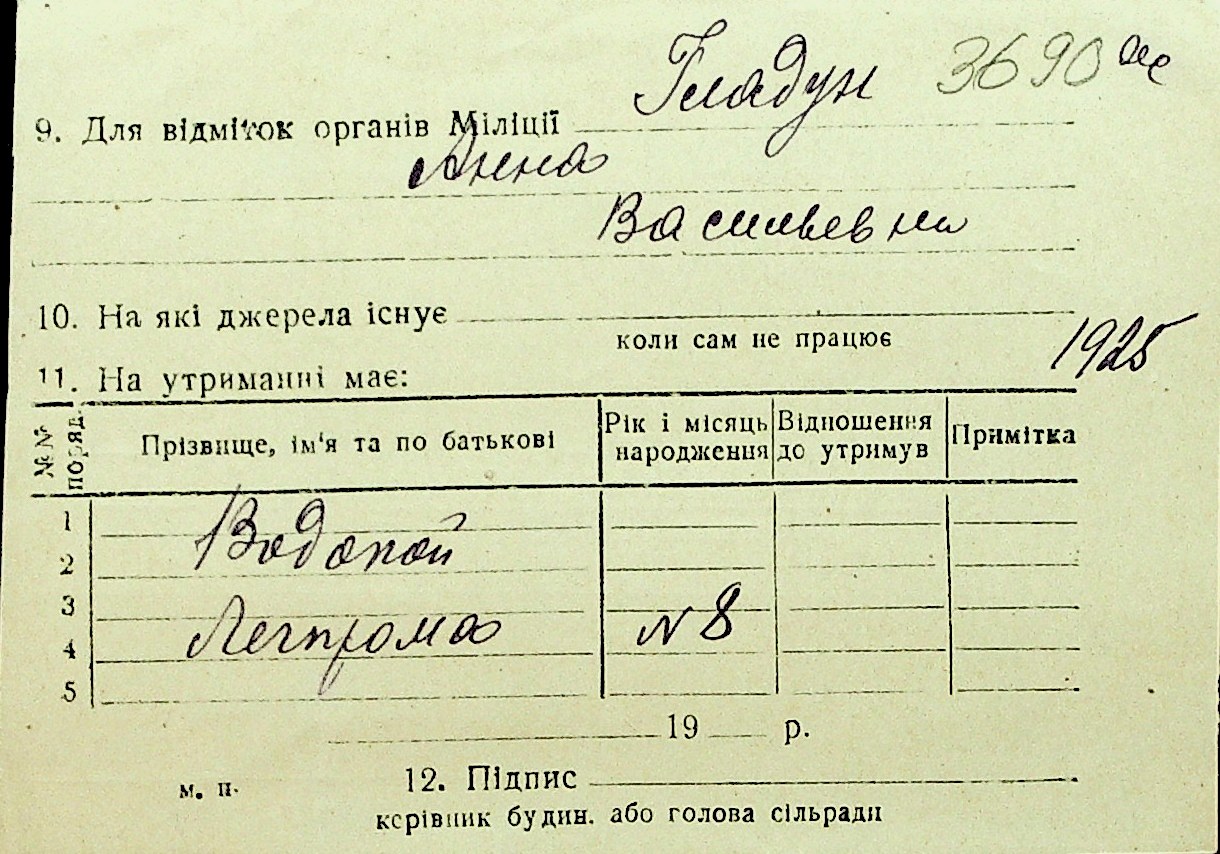 Гладун 3690
9. Для відміток органів Міліції
Анна
Васильевна
10. На які джерела існує
коли сам не працює
1925
11. На утриманні має:
№№ поряд. Прізвище, ім'я та по батькові Рік і місяць народження Відношення до утримув Примітка
1
Водопой
2
3
Легпрома N 8
4
5
19 р.
м. п. 12. Підпис
керівник будин. або голова сільради